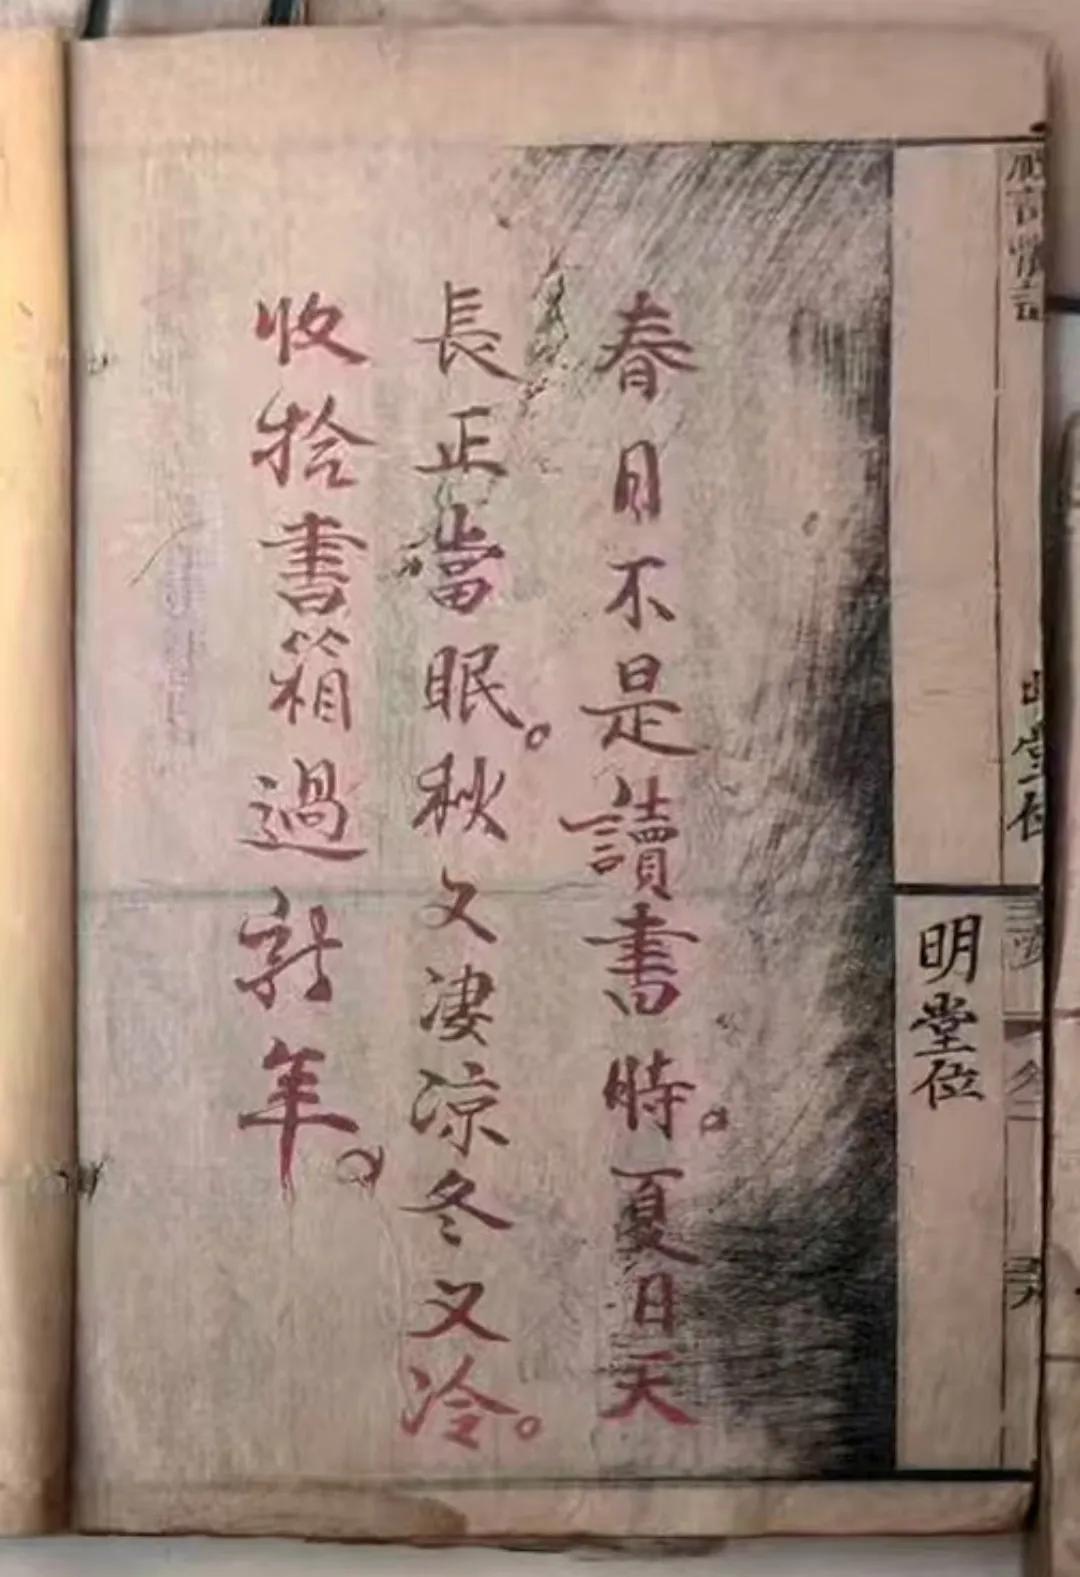 明堂位
春日不是讀書時。夏日天
長正當眠。秋又淒涼冬又冷。
收拾書箱過新年。